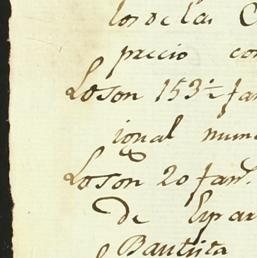 los de la C
precio con
Lo son 153½ fan
igual num
Lo son 20 fan.
de Espar
Bautista